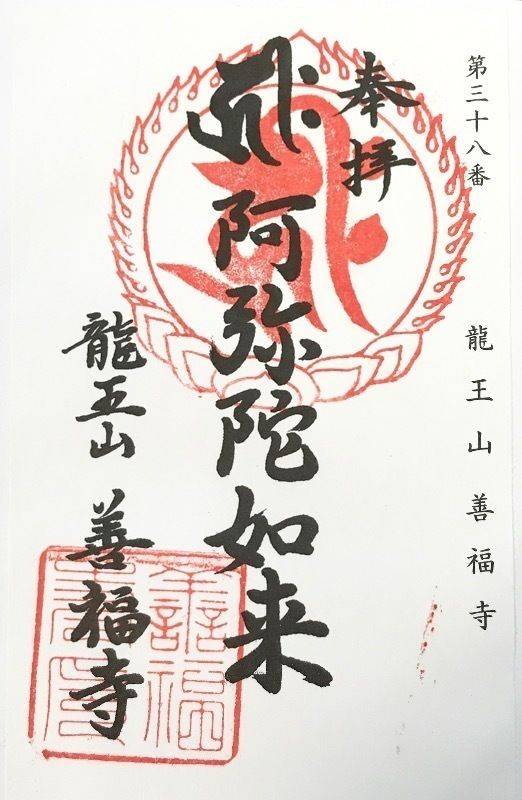 第三十八番　龍王山善福寺
奉拝
阿弥陀如来
龍王山　善福寺